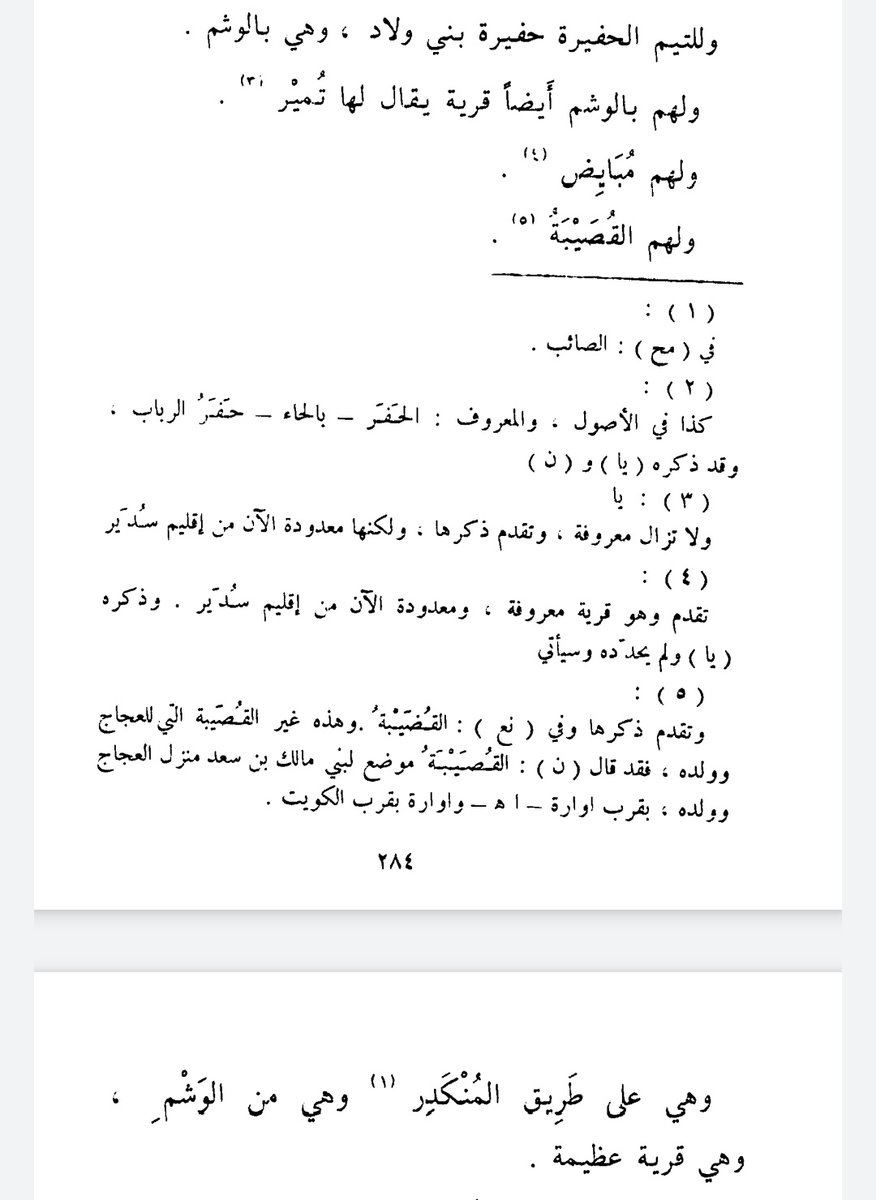 وللتيم الحفيرة حفيرة بني ولاد ، وهي بالوشم .
ولهم بالوشم أَيضاً قرية يقال لها تُميْر (٣) .
ولهم مُبَايِض (٤) .
ولهم القُصَيْبَةُ (٥) .
( ١ ) :
في ( مح ) : الصائب .
( ٢ ) :
كذا في الأصول ، والمعروف : الحَفَر – بالحاء – حَفَرُ الرباب ،
وقد ذكره ( يا ) و ( ن )
( ٣ ) : يا
ولا تزال معروفة ، وتقدم ذكرها ، ولكنها معدودة الآن من إقليم سُدَير
( ٤ ) :
تقدم وهو قرية معروفة ، ومعدودة الآن من إقليم سُدَير . وذكره
( يا ) ولم يحدّده وسيأتي
( ٥ ) :
وتقدم ذكرها وفي ( نع ) : القُضَيْبة ُ .وهذه غير القُصَيبة التي للعجاج
وولده ، فقد قال ( ن ) : القُصَيْبَة ُ موضع لبني مالك بن سعد منزل العجاج
وولده ، بقرب اوارة – ا ه – واوارة بقرب الكويت .
٢٨٤
وهي على طَرِيق المُنْكَدِر (١) وهي من الوَشْمِ ،
وهي قرية عظيمة .